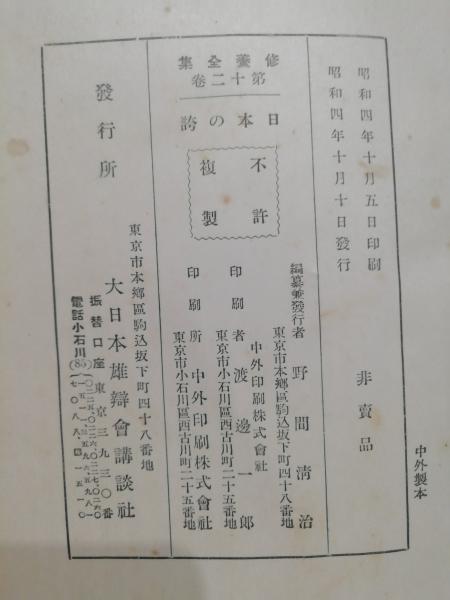 昭和四年十月五日印刷
昭和四年十月十日發行
非賣品
修養全集
第十二卷
日本の誇
不許
複製
編纂兼發行者 野間淸治
東京市本鄕區駒込坂下町四十八番地
中外印刷株式會社
印刷者 渡邊一郞
東京市小石川區西古川町二十五番地
印刷所 中外印刷株式會社
東京市小石川區西古川町二十五番地
發行所
東京市本鄕區駒込坂下町四十八番地
大日本雄辯會講談社
振替口座東京三九三〇番
電話小石川(85)
中外製本